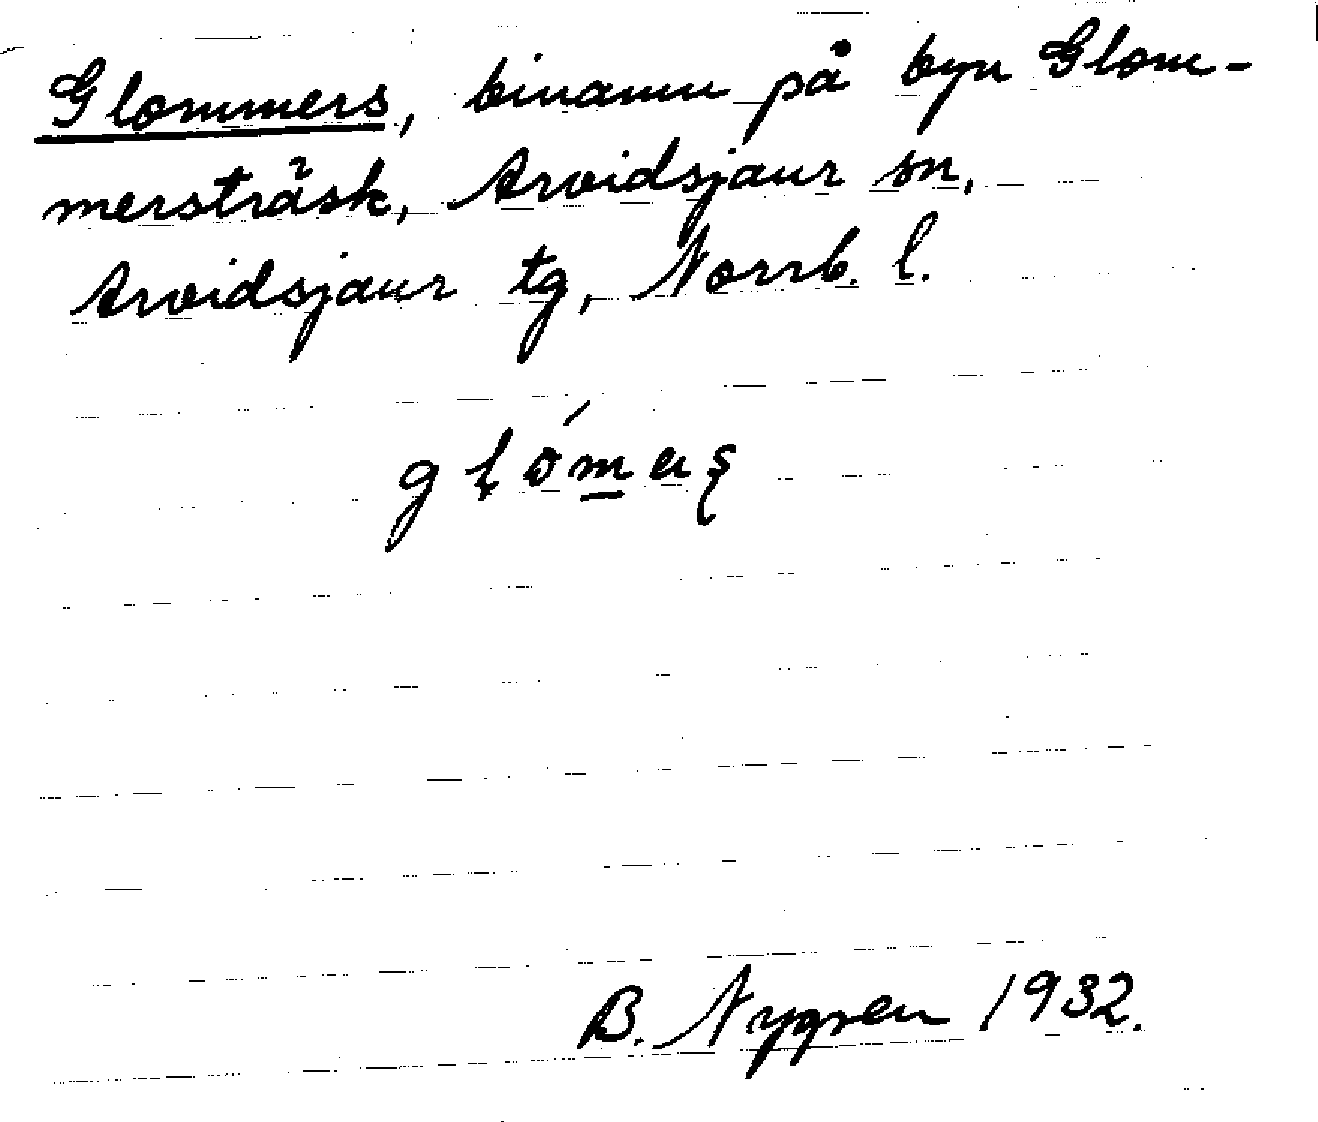 Glommers, binamn på byn Glom-
mersträsk, Arvidsjaur sn,
Arvidsjaur tg, Norrb. l.
B. Nygren 1932.